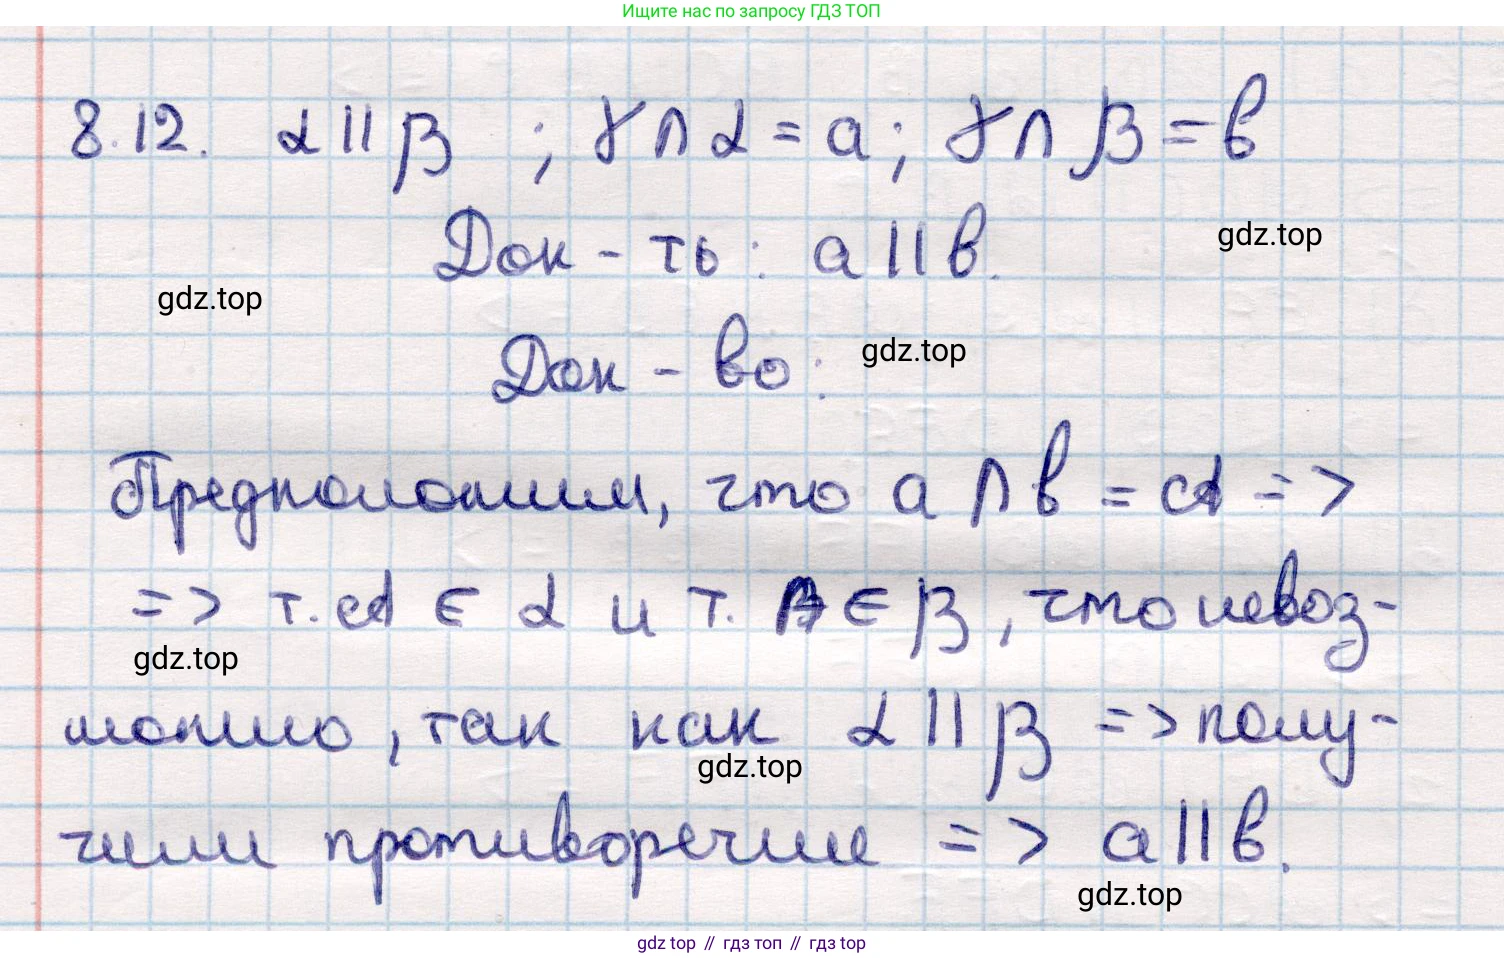 Ищите нас по запросу ГДЗ ТОП
8.12. α || β ; γ ∩ α = a; γ ∩ β = b
Док-ть: a || b.
gdz.top
gdz.top
Док-во:
gdz.top
Предположим, что a ∩ b = A =>
=> т. A ∈ α и т. A ∈ β, что невоз-
gdz.top
можно, так как α || β => полу-
gdz.top
чили противоречие => a || b.
gdz.top
gdz top // гдз топ // гдз top